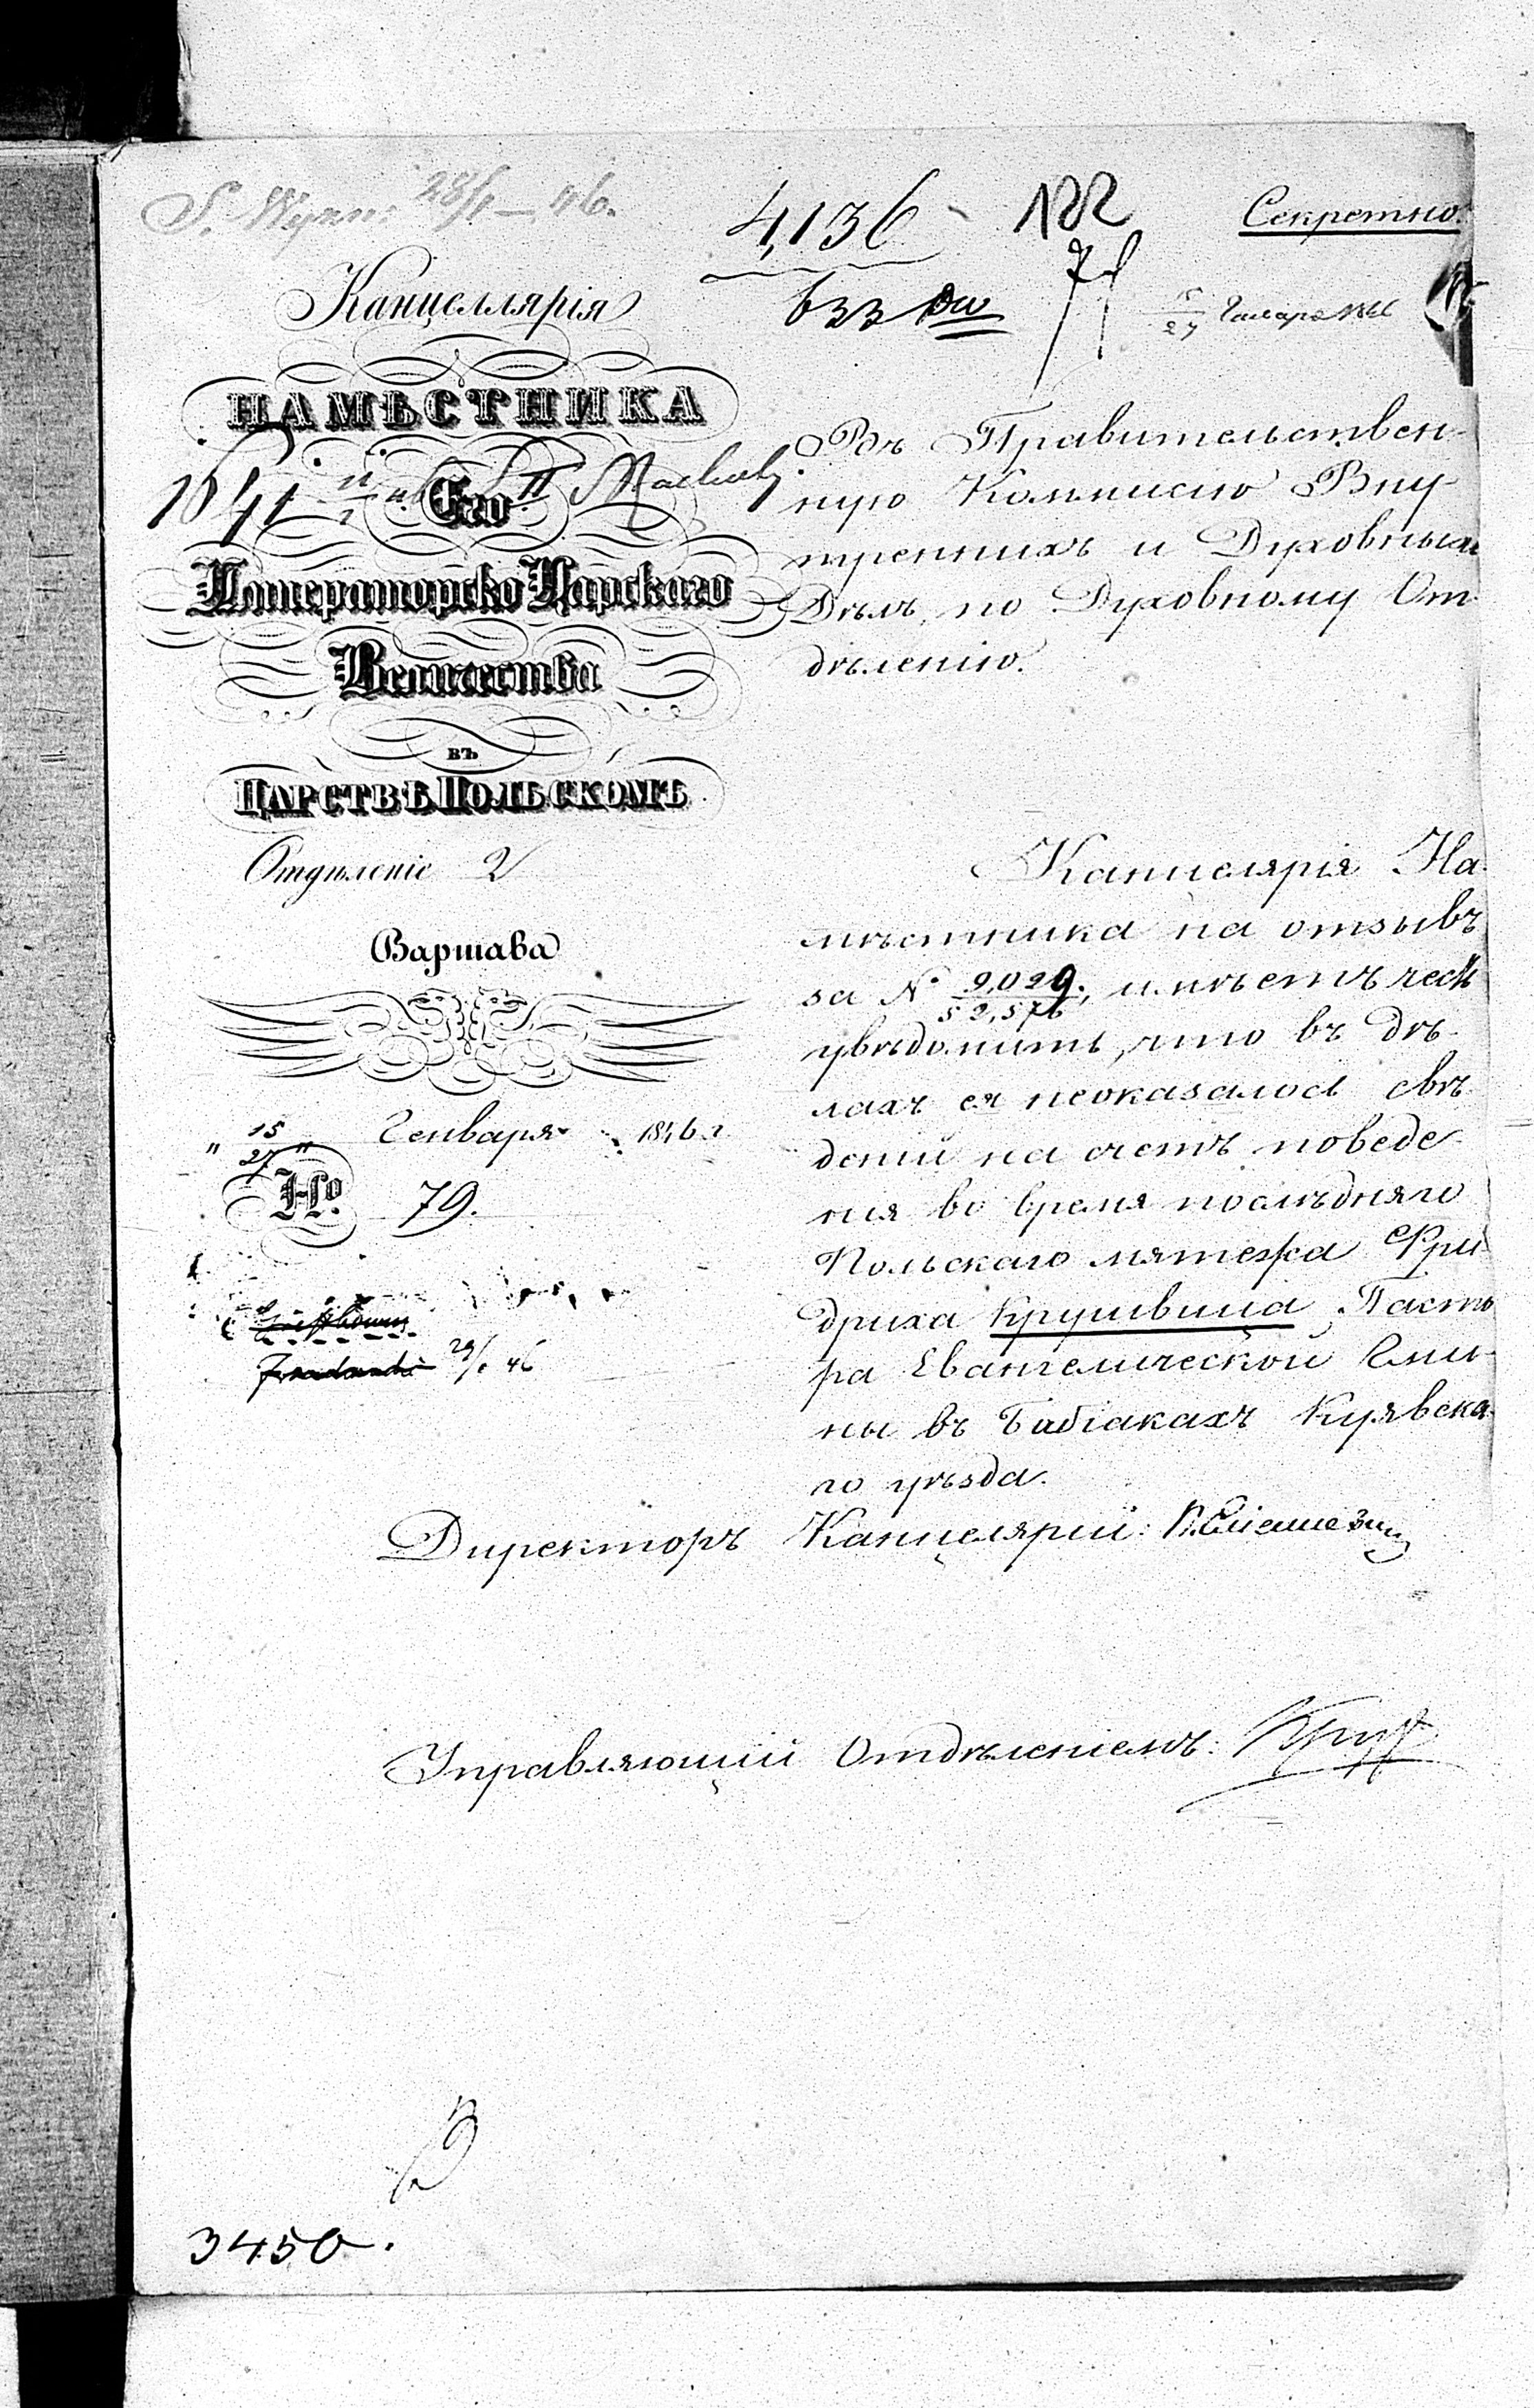 28/1 – 46.
4,136
122
Секретно.
633
Канцеллярія
15/27 Января 1846
НАМѢСТНИКА
Его
Императорско Царскаго
Величества
въ
ЦАРСТВѢ ПОЛЬСКОМЪ
Отдѣленіе 2
Варшава
„ 15/27 „ Генваря 1846 г.
No. 79.
29/1 46
Въ Правительствен-
ную Коммисію Вну-
треннихъ и Духовныхъ
Дѣлъ, по Духовному От-
дѣленію.
Канцелярія На-
мѣстника на отзывъ
за № 2,029./52,576, имѣетъ честь
увѣдомить, что въ дѣ-
лахъ ея неоказалось свѣ-
деній на счетъ поведе-
нія во время послѣдняго
Польскаго мятежа Фри-
дриха Крушвица, Пасто-
ра Евангелической Гми-
ны въ Бабіакахъ Куявска-
го уѣзда.
Директоръ Канцеляріи:
Управляющій Отдѣленіемъ:
3450.